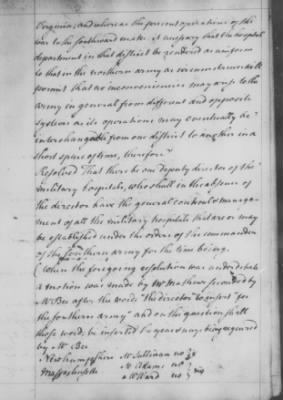 Virginia; and whereas the present operations of the
war to the southward make it necessary that the hospital
department in that district be rendered as uniform
to that in the northern army as circumstances will
permit that no inconveniencies may arise to the
army in general from different and opposite
systems as its operations may eventually be
interchangeable from one district to another in a
short space of time, therefore
Resolved That there be one deputy director of the
military hospitals, who shall in the absence of
the director have the general control & manage-
ment of all the military hospitals that are or may
be established under the orders of the commander
of the southern army for the time being.
When the foregoing resolution was under debate
a motion was made by Mr Mathews seconded by
Mr Bee after the words "the director" to insert "for
the southern army" and on the question shall
those words be inserted the yeas & nays being required
by Mr Bee
New hampshire Mr Sullivan no
Massachusetts Mr Adams no
Mr Ward no